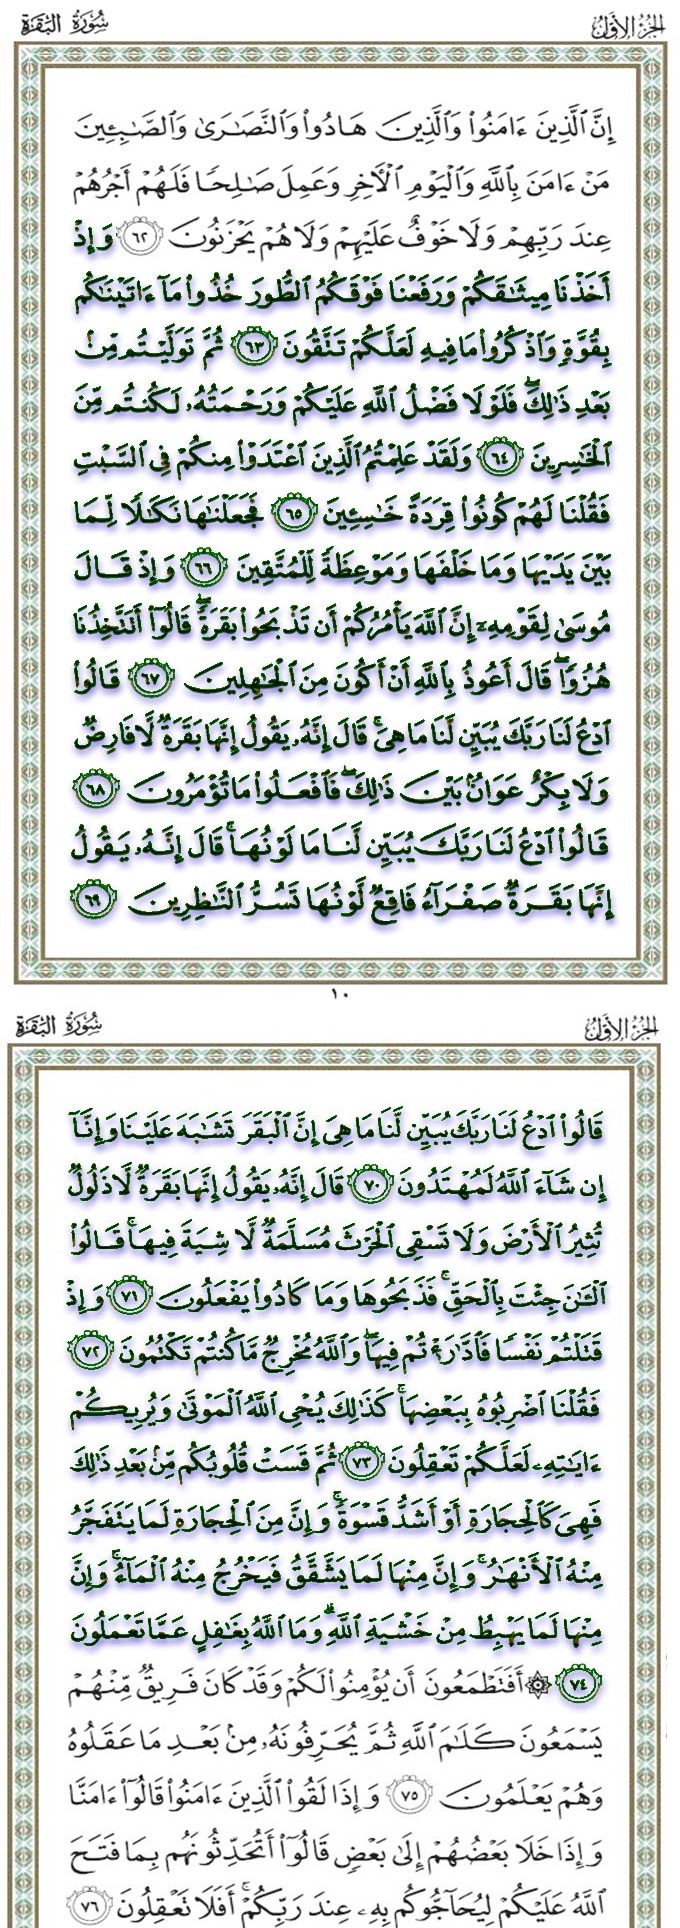 الجزء الأول
سورة البقرة
إِنَّ ٱلَّذِينَ ءَامَنُوا۟ وَٱلَّذِينَ هَادُوا۟ وَٱلنَّصَـٰرَىٰ وَٱلصَّـٰبِـِٔينَ
مَنْ ءَامَنَ بِٱللَّهِ وَٱلْيَوْمِ ٱلْـَٔاخِرِ وَعَمِلَ صَـٰلِحًا فَلَهُمْ أَجْرُهُمْ
عِندَ رَبِّهِمْ وَلَا خَوْفٌ عَلَيْهِمْ وَلَا هُمْ يَحْزَنُونَ ٦٢ وَإِذْ
أَخَذْنَا مِيثَـٰقَكُمْ وَرَفَعْنَا فَوْقَكُمُ ٱلطُّورَ خُذُوا۟ مَآ ءَاتَيْنَـٰكُم
بِقُوَّةٍ وَٱذْكُرُوا۟ مَا فِيهِ لَعَلَّكُمْ تَتَّقُونَ ٦٣ ثُمَّ تَوَلَّيْتُم مِّنۢ
بَعْدِ ذَٰلِكَ ۖ فَلَوْلَا فَضْلُ ٱللَّهِ عَلَيْكُمْ وَرَحْمَتُهُۥ لَكُنتُم مِّنَ
ٱلْخَـٰسِرِينَ ٦٤ وَلَقَدْ عَلِمْتُمُ ٱلَّذِينَ ٱعْتَدَوْا۟ مِنكُمْ فِى ٱلسَّبْتِ
فَقُلْنَا لَهُمْ كُونُوا۟ قِرَدَةً خَـٰسِـِٔينَ ٦٥ فَجَعَلْنَـٰهَا نَكَـٰلًا لِّمَا
بَيْنَ يَدَيْهَا وَمَا خَلْفَهَا وَمَوْعِظَةً لِّلْمُتَّقِينَ ٦٦ وَإِذْ قَالَ
مُوسَىٰ لِقَوْمِهِۦٓ إِنَّ ٱللَّهَ يَأْمُرُكُمْ أَن تَذْبَحُوا۟ بَقَرَةً ۖ قَالُوٓا۟ أَتَتَّخِذُنَا
هُزُوًا ۖ قَالَ أَعُوذُ بِٱللَّهِ أَنْ أَكُونَ مِنَ ٱلْجَـٰهِلِينَ ٦٧ قَالُوا۟
ٱدْعُ لَنَا رَبَّكَ يُبَيِّن لَّنَا مَا هِىَ ۚ قَالَ إِنَّهُۥ يَقُولُ إِنَّهَا بَقَرَةٌ لَّا فَارِضٌ
وَلَا بِكْرٌ عَوَانٌۢ بَيْنَ ذَٰلِكَ ۖ فَٱفْعَلُوا۟ مَا تُؤْمَرُونَ ٦٨
قَالُوا۟ ٱدْعُ لَنَا رَبَّكَ يُبَيِّن لَّنَا مَا لَوْنُهَا ۚ قَالَ إِنَّهُۥ يَقُولُ
إِنَّهَا بَقَرَةٌ صَفْرَآءُ فَاقِعٌ لَّوْنُهَا تَسُرُّ ٱلنَّـٰظِرِينَ ٦٩
١٠
الجزء الأول
سورة البقرة
قَالُوا۟ ٱدْعُ لَنَا رَبَّكَ يُبَيِّن لَّنَا مَا هِىَ إِنَّ ٱلْبَقَرَ تَشَـٰبَهَ عَلَيْنَا وَإِنَّآ
إِن شَآءَ ٱللَّهُ لَمُهْتَدُونَ ٧٠ قَالَ إِنَّهُۥ يَقُولُ إِنَّهَا بَقَرَةٌ لَّا ذَلُولٌ
تُثِيرُ ٱلْأَرْضَ وَلَا تَسْقِى ٱلْحَرْثَ مُسَلَّمَةٌ لَّا شِيَةَ فِيهَا ۚ قَالُوا۟
ٱلْـَٔـٰنَ جِئْتَ بِٱلْحَقِّ ۚ فَذَبَحُوهَا وَمَا كَادُوا۟ يَفْعَلُونَ ٧١ وَإِذْ
قَتَلْتُمْ نَفْسًا فَٱدَّٰرَْٰٔتُمْ فِيهَا ۖ وَٱللَّهُ مُخْرِجٌ مَّا كُنتُمْ تَكْتُمُونَ ٧٢
فَقُلْنَا ٱضْرِبُوهُ بِبَعْضِهَا ۚ كَذَٰلِكَ يُحْىِ ٱللَّهُ ٱلْمَوْتَىٰ وَيُرِيكُمْ
ءَايَـٰتِهِۦ لَعَلَّكُمْ تَعْقِلُونَ ٧٣ ثُمَّ قَسَتْ قُلُوبُكُم مِّنۢ بَعْدِ ذَٰلِكَ
فَهِىَ كَٱلْحِجَارَةِ أَوْ أَشَدُّ قَسْوَةً ۚ وَإِنَّ مِنَ ٱلْحِجَارَةِ لَمَا يَتَفَجَّرُ
مِنْهُ ٱلْأَنْهَـٰرُ ۚ وَإِنَّ مِنْهَا لَمَا يَشَّقَّقُ فَيَخْرُجُ مِنْهُ ٱلْمَآءُ ۚ وَإِنَّ
مِنْهَا لَمَا يَهْبِطُ مِنْ خَشْيَةِ ٱللَّهِ ۗ وَمَا ٱللَّهُ بِغَـٰفِلٍ عَمَّا تَعْمَلُونَ
٧٤ ۞ أَفَتَطْمَعُونَ أَن يُؤْمِنُوا۟ لَكُمْ وَقَدْ كَانَ فَرِيقٌ مِّنْهُمْ
يَسْمَعُونَ كَلَـٰمَ ٱللَّهِ ثُمَّ يُحَرِّفُونَهُۥ مِنۢ بَعْدِ مَا عَقَلُوهُ
وَهُمْ يَعْلَمُونَ ٧٥ وَإِذَا لَقُوا۟ ٱلَّذِينَ ءَامَنُوا۟ قَالُوٓا۟ ءَامَنَّا
وَإِذَا خَلَا بَعْضُهُمْ إِلَىٰ بَعْضٍ قَالُوٓا۟ أَتُحَدِّثُونَهُم بِمَا فَتَحَ
ٱللَّهُ عَلَيْكُمْ لِيُحَآجُّوكُم بِهِۦ عِندَ رَبِّكُمْ ۚ أَفَلَا تَعْقِلُونَ ٧٦